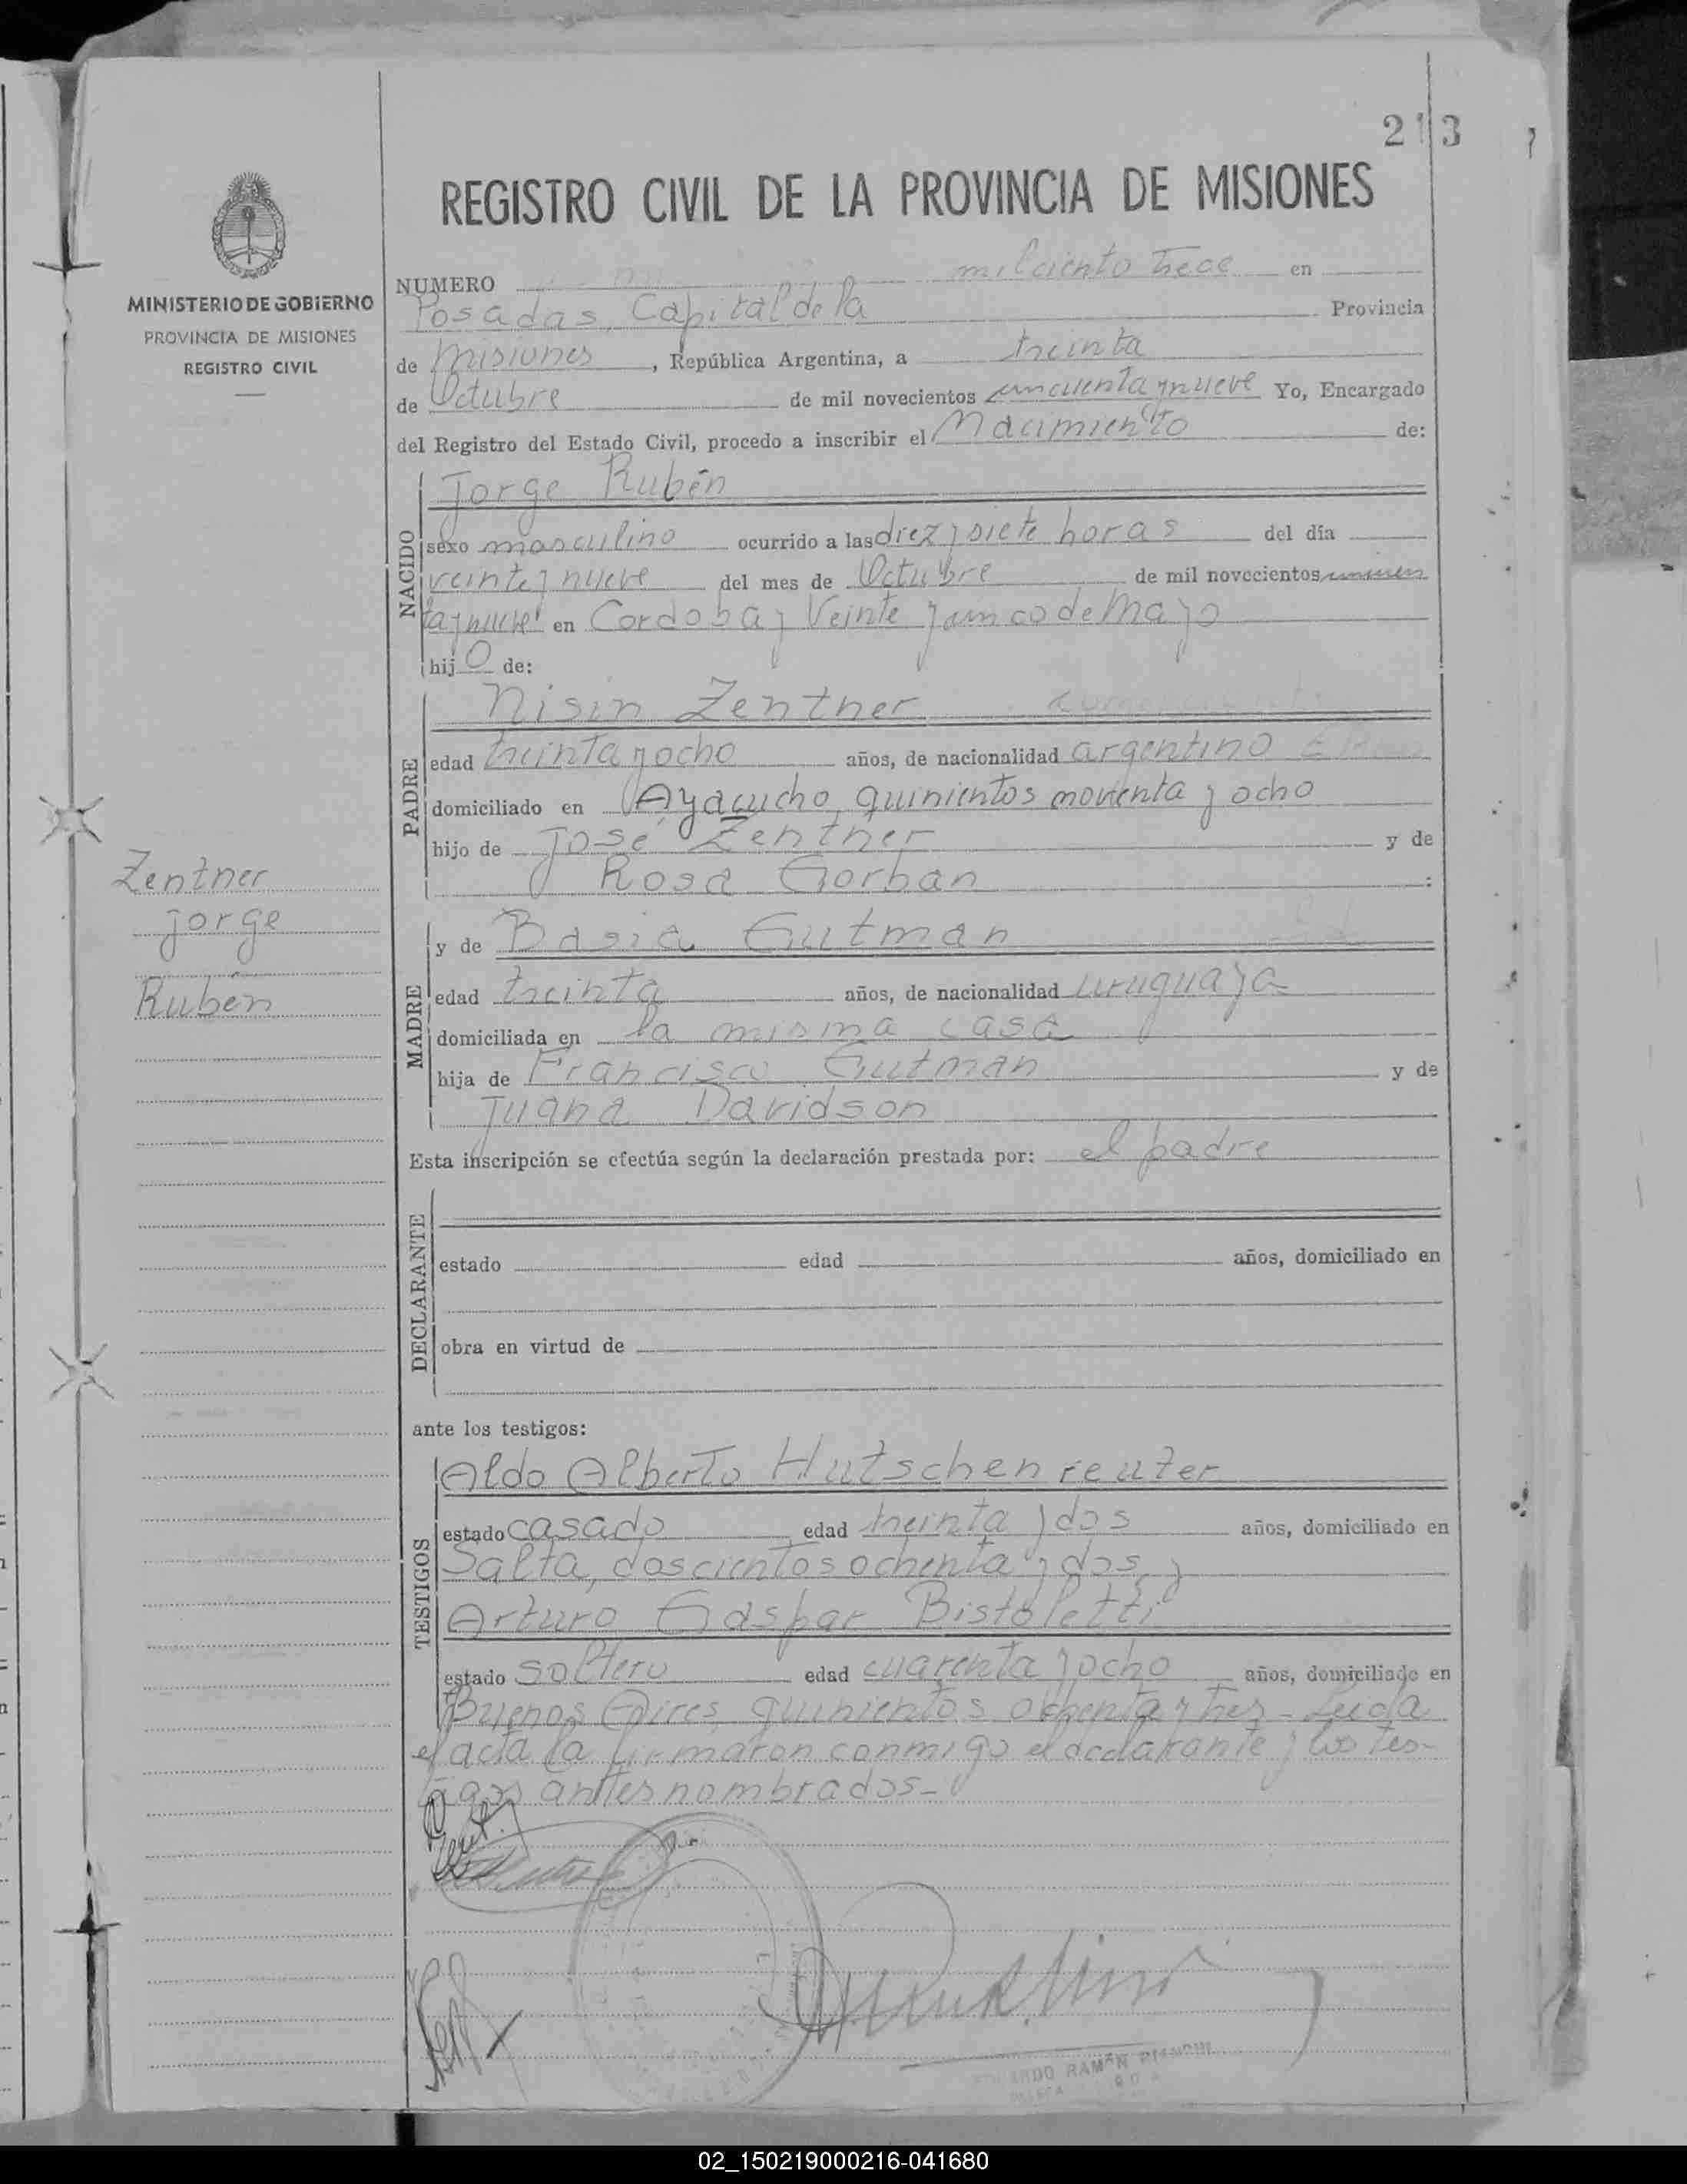 213
REGISTRO CIVIL DE LA PROVINCIA DE MISIONES
MINISTERIO DE GOBIERNO
PROVINCIA DE MISIONES
REGISTRO CIVIL
NUMERO milciento trece en
Posadas, Capital de la Provincia
de Misiones, República Argentina, a treinta
de Octubre de mil novecientos cincuenta y nueve Yo, Encargado
del Registro del Estado Civil, procedo a inscribir el Nacimiento de:
NACIDO
Jorge Rubén
sexo masculino ocurrido a las diez y siete horas del día
veinte y nueve del mes de Octubre de mil novecientos cincuen
ta y nueve en Cordoba y Veinte y cinco de Mayo
hijo de:
PADRE
Nisin Zentner
edad treinta y ocho años, de nacionalidad argentino
domiciliado en Ayacucho, quinientos noventa y ocho
hijo de José Zentner y de
Rosa Gorban :
Zentner
Jorge
Rubén
MADRE
y de Basia Gutman
edad treinta años, de nacionalidad uruguaya
domiciliada en la misma casa
hija de Francisco Gutman y de
Juana Davidson
Esta inscripción se efectúa según la declaración prestada por: el padre
DECLARANTE
estado edad años, domiciliado en
obra en virtud de
ante los testigos:
TESTIGOS
Aldo Alberto Hutschenreuter
estado casado edad treinta y dos años, domiciliado en
Salta, doscientos ochenta y dos, y
Arturo Gaspar Bistoletti
estado soltero edad cuarenta y ocho años, domiciliado en
Buenos Aires, quinientos ochenta y tres - Leida
el acta la firmaron conmigo el declarante y los tes-
tigos antes nombrados-
RAMÓN
02_150219000216-041680